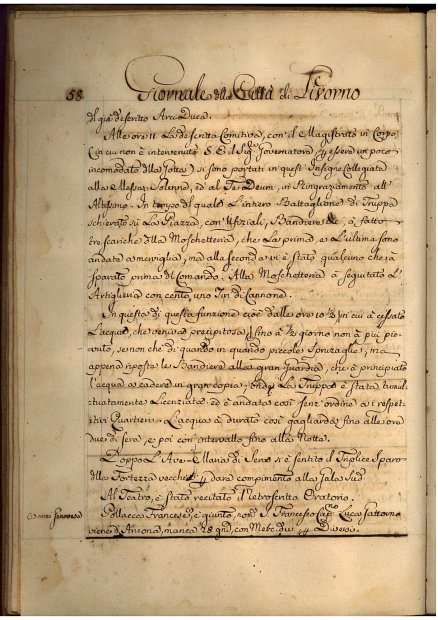 58. Giornale della Città di Livorno
del già descritto Arci Duca.
Alle ore 11. La descritta Comitiva, con il Magistrato in Corpo,
(in cui non è intervenuto S. E. il Sig.r Governatore, essere un poco
incomodato dalla Gotta) si sono portati in quest' Insigne Collegiata
alla Messa Solenne, ed al Te Deum, in Ringraziamento all'
Altissimo. In tempo del quale L'intiero Battaglione di Truppa
schierato su La Piazza, con Ufiziali, Bandiere &c, à fatto
tre scariche della Moschetteria, che La prima, e L'ultima sono
andate a meraviglia, ma alla seconda vi è stato qualcuno che à
sparato prima del Comando. Alla Moschetteria à seguitato L'
Artiglieria con cento, uno Tiri di Cannone.
In questa di questa funzione cioè dalle ore 10 ½ in cui à cessato
L'acqua, che veniva precipitosa, fino à ½ giorno non à più pio-
vuto, se non che di quando in quando piccole Spruzaglie, ma
appena riposte le Bandiere alla gran Guardia, che à principiato
l'acqua a cadere in gran copia, onde La Truppa è stata tumul-
tuatamente Licenziata ed è andata così senz' ordine a i respet-
tivi Quartieri. L'acqua à durato così gagliarda fino alle ore
due di sera, e poi con intervallo fino alla Notte.
Doppo L'Ave Maria di Sera si è sentito il Triplice Sparo
della Fortezza vecchia dare compimento alla gala Sud.
Al Teatro, è stato recitato il retroscritto Oratorio.
Pollacca Francese, è giunto, S. Francesco Cap.no Luca Fattorno
viene d'Ancona, manca 28 gni, con Merc. div. Diversi.